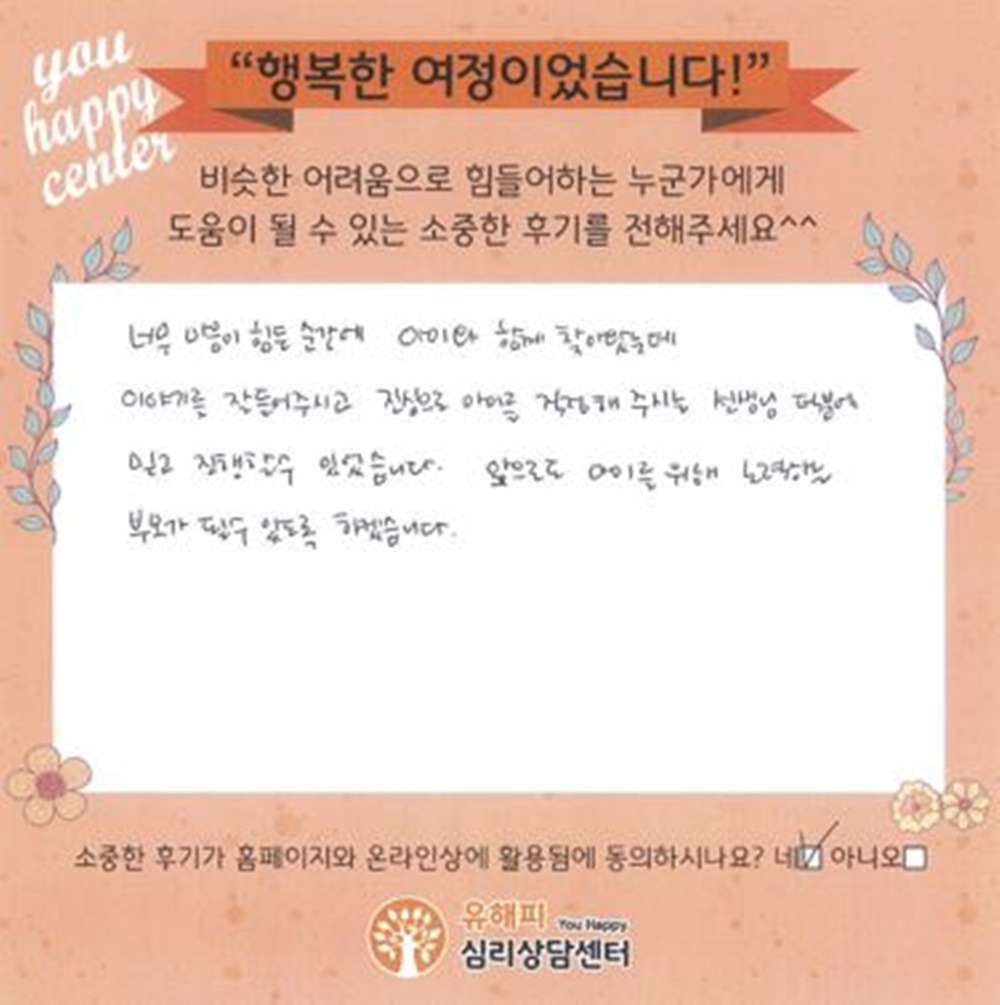 you
happy
center
“행복한 여정이었습니다!”
비슷한 어려움으로 힘들어하는 누군가에게
도움이 될 수 있는 소중한 후기를 전해주세요^^
너무 마음이 힘든 순간에 아이와 함께 찾아왔는데
이야기를 잘들어주시고 진심으로 아이를 걱정해 주시는 선생님 덕분에
믿고 진행할수 있었습니다. 앞으로도 아이를 위해 노력하는
부모가 될수 있도록 하겠습니다.
소중한 후기가 홈페이지와 온라인상에 활용됨에 동의하시나요? 네 아니오
유해피 You Happy
심리상담센터